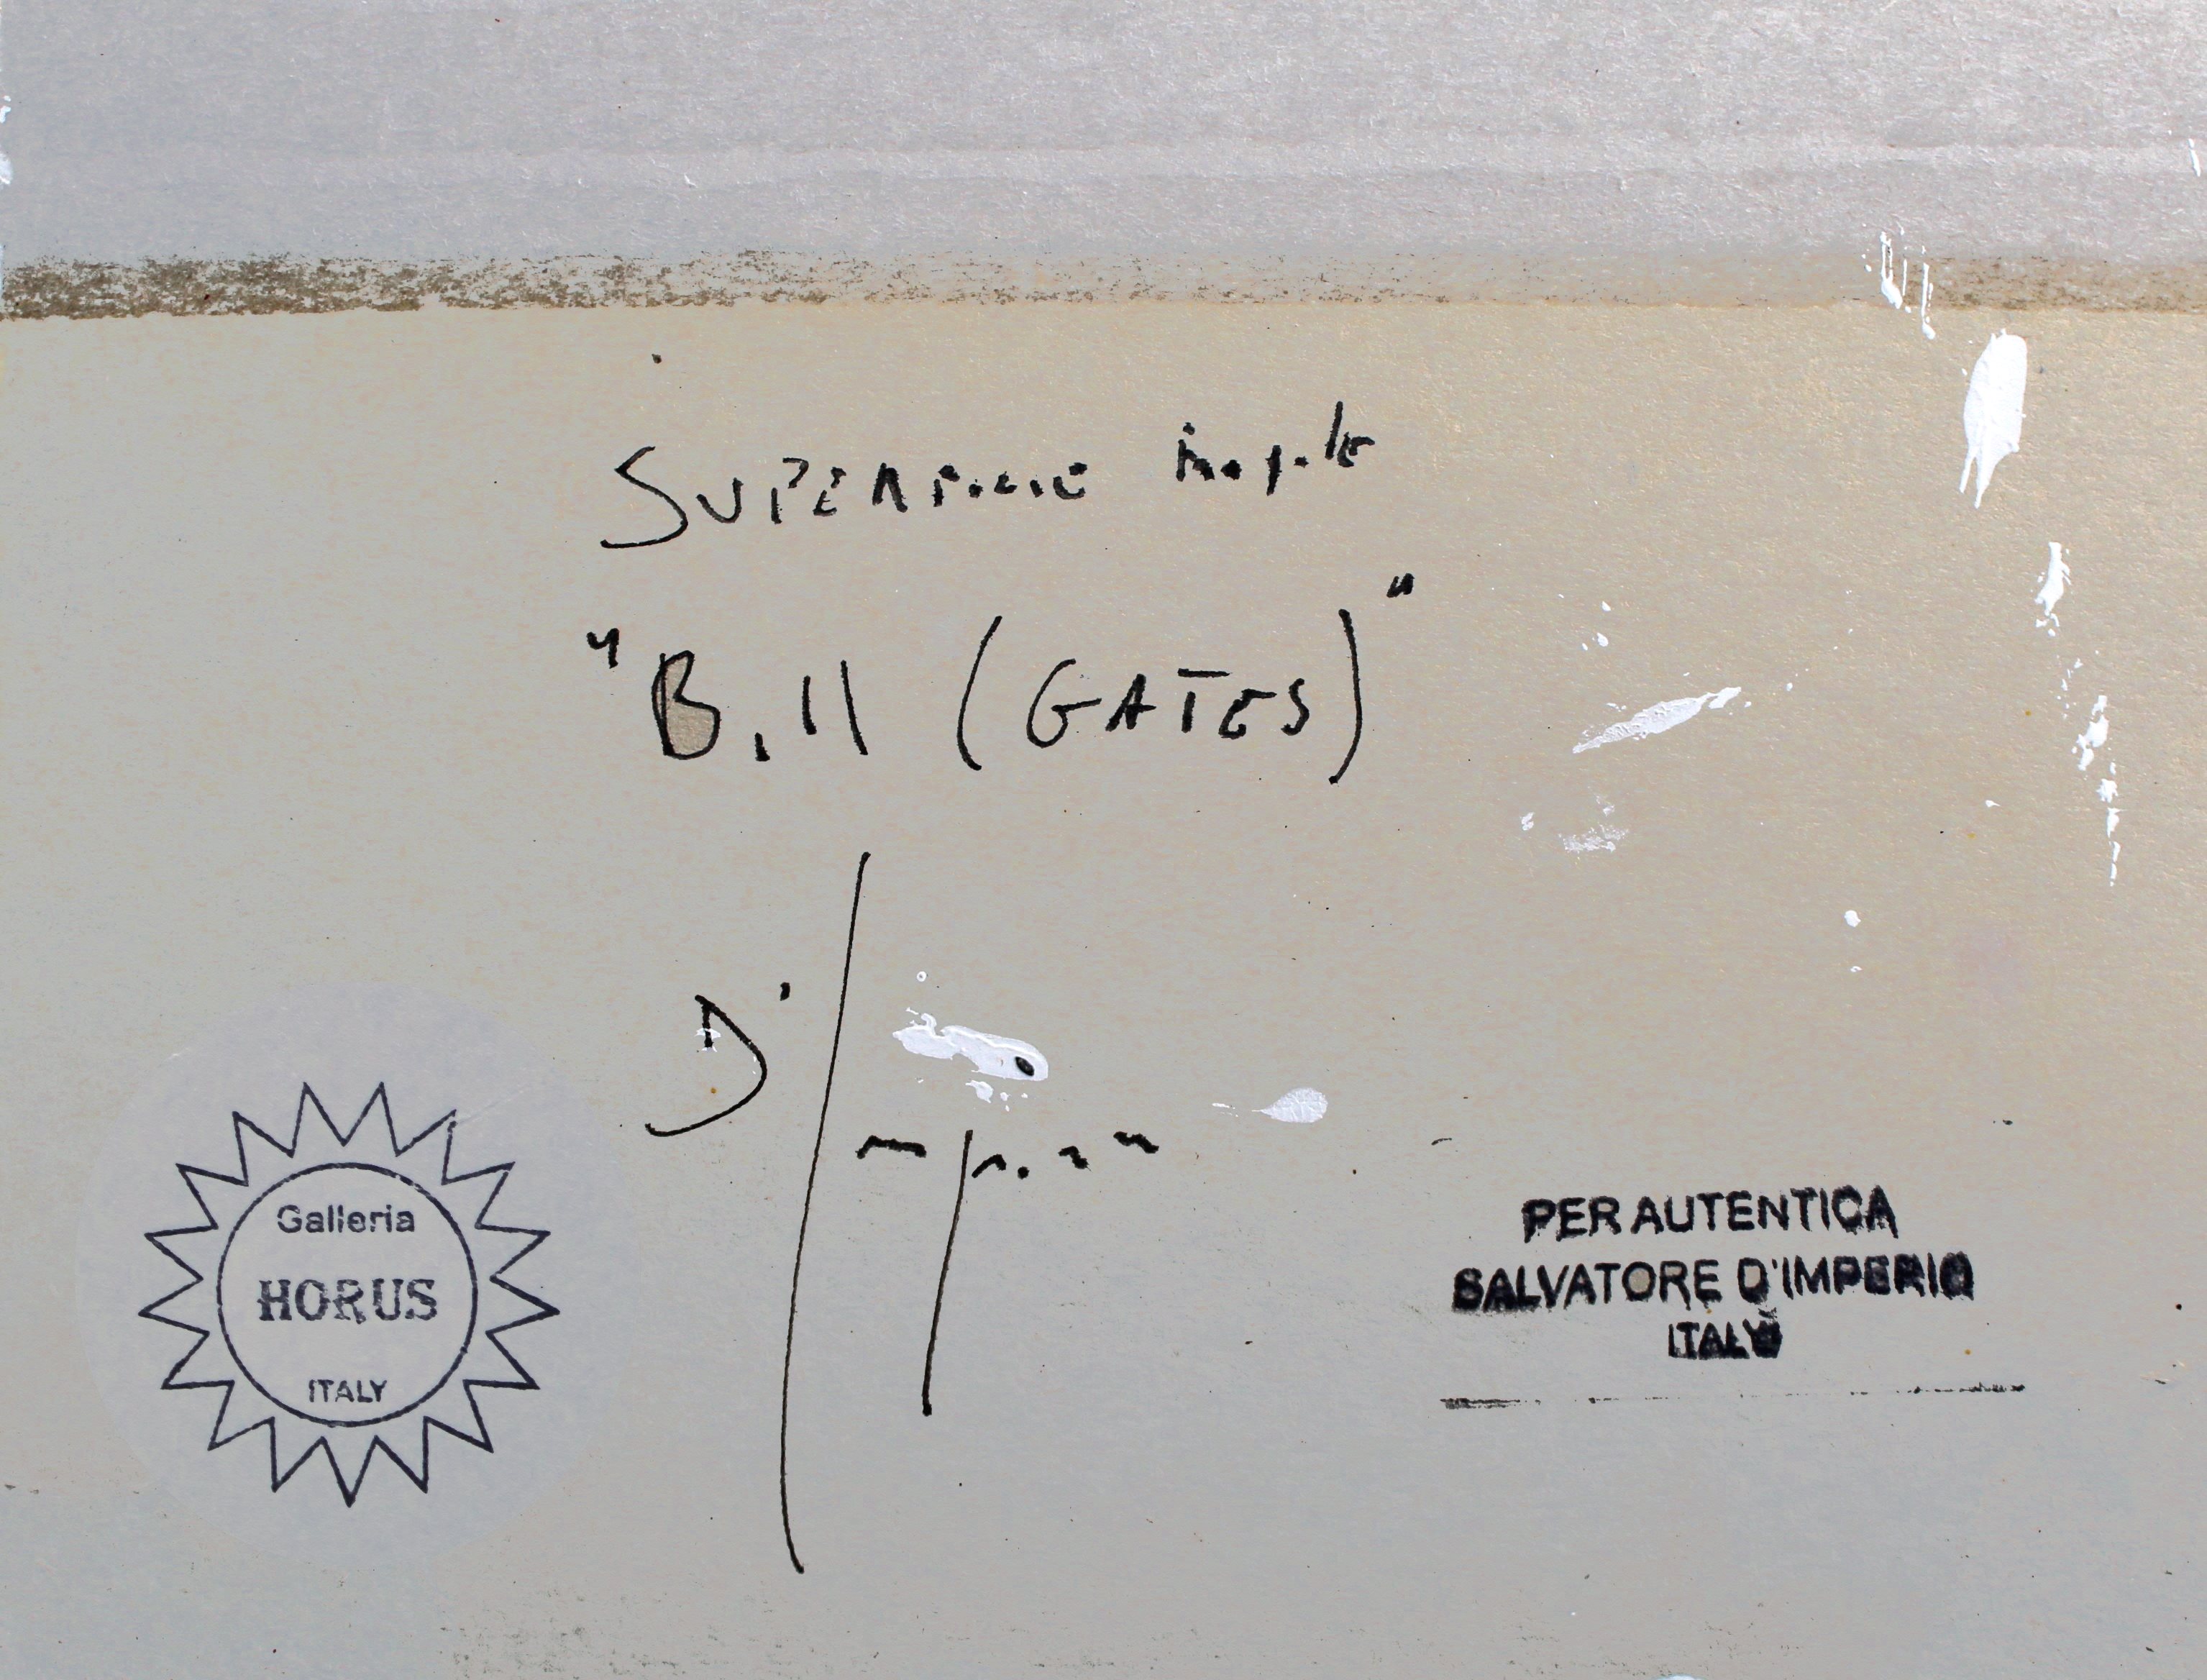 "Bill (GATES)"
D'Imperio
Galleria
HORUS
ITALY
PER AUTENTICA
SALVATORE D'IMPERIO
ITALY